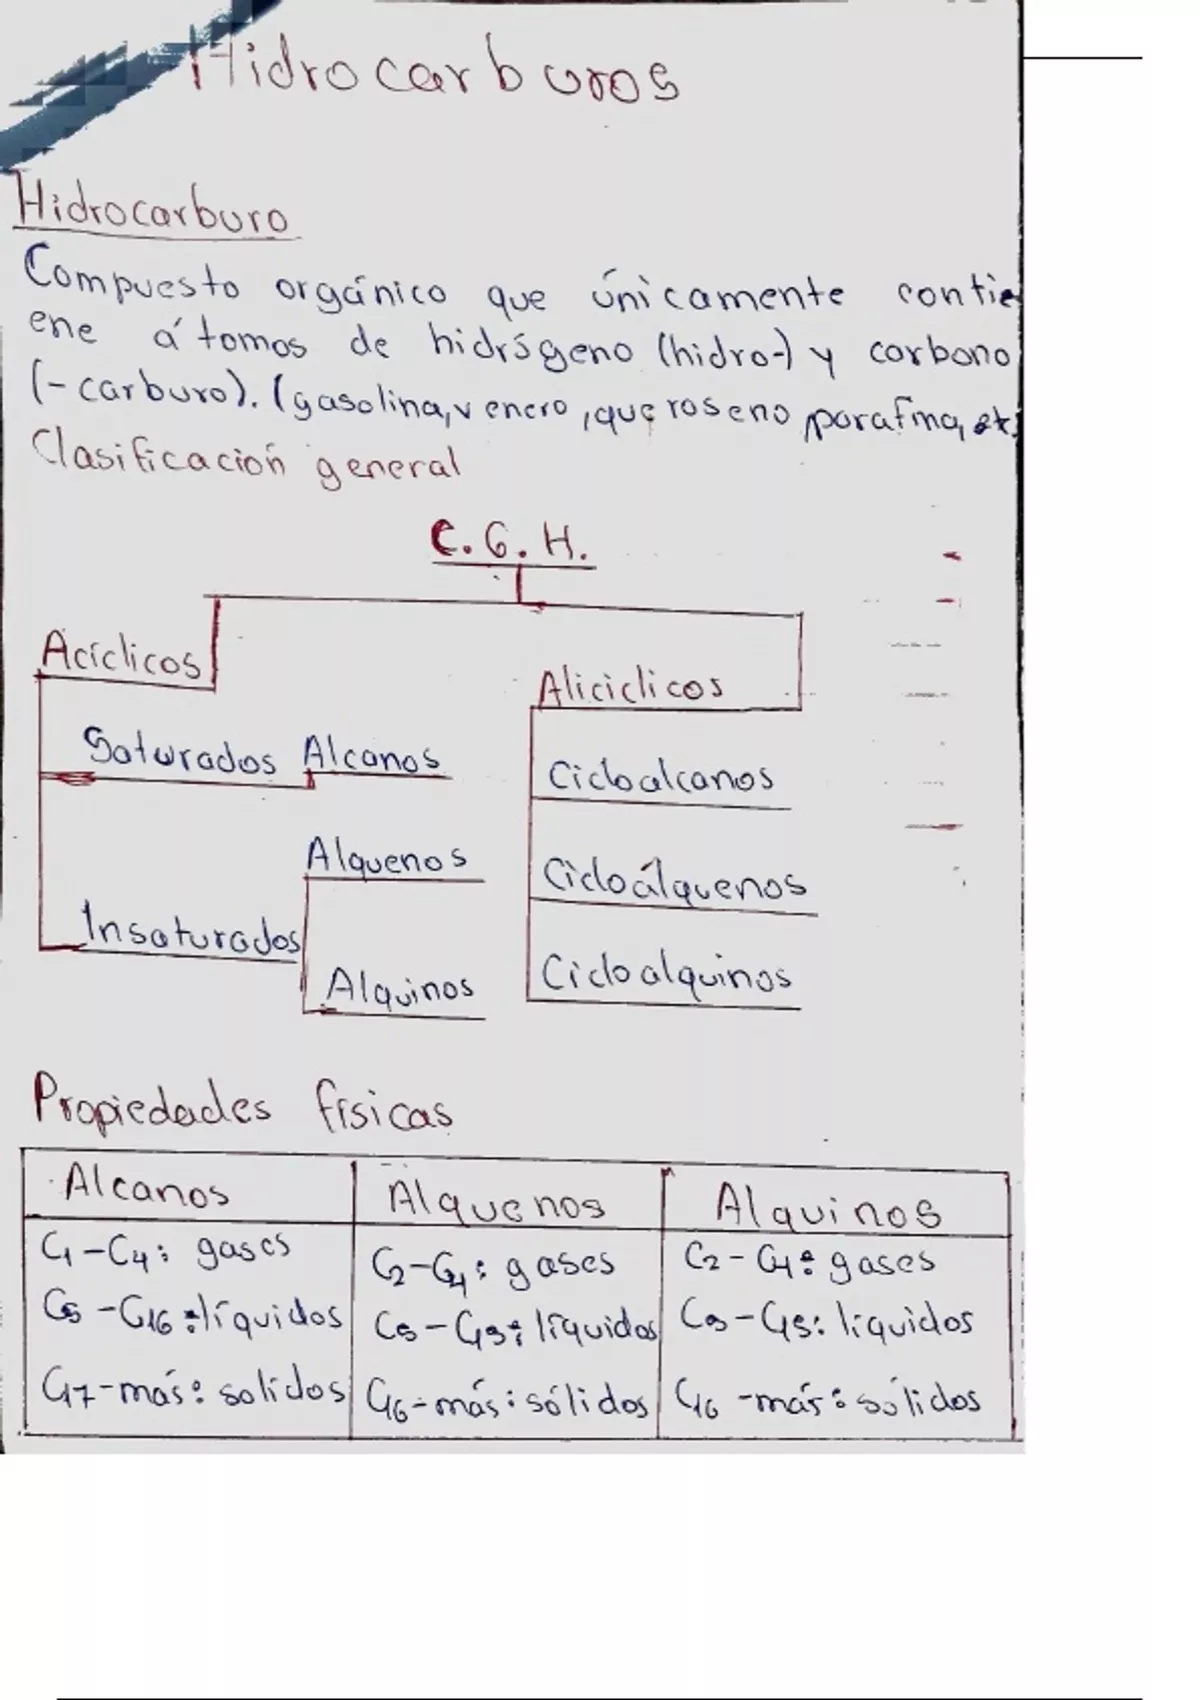 Hidrocarburos
Hidrocarburo
Compuesto orgánico que únicamente contie
ene átomos de hidrógeno (hidro-) y carbono
(-carburo). (gasolina, venero, queroseno parafina, etc.
Clasificación general
C.G.H.
Acíclicos
Saturados Alcanos
Alquenos
Insaturados
Alquinos
Aliciclicos
Cicloalcanos
Cicloálquenos
Cicloalquinos
Propiedades físicas
Alcanos Alquenos Alquinos
C1-C4: gases C2-C4: gases C2-C4: gases
C5-C16: líquidos C5-C15: líquidos líquidos
C17-más: solídos C16-más: sólidos C16-más: sólidos